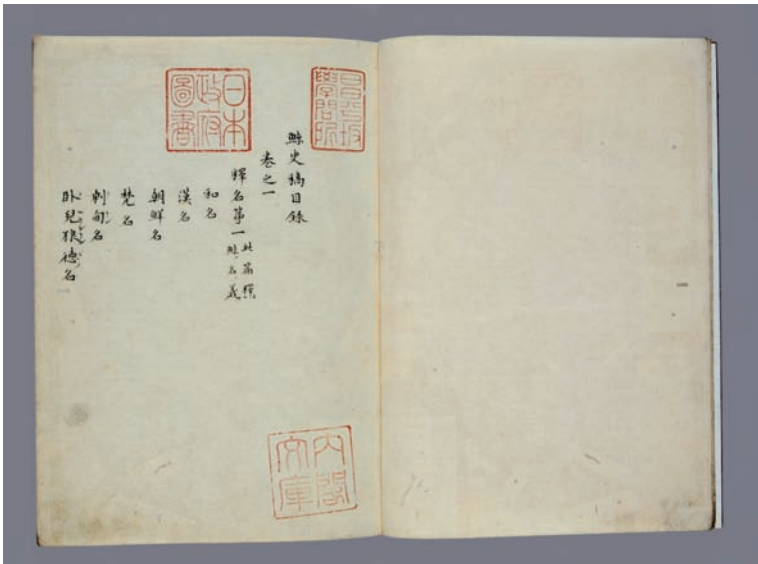 昌平坂學問所
日本政府圖書
鯨史稿目錄
卷之一
釋名第一 此篇釋鯨名義
和名
漢名
朝鮮名
梵名
剌甸名
臥兒狼德名
內閣文庫